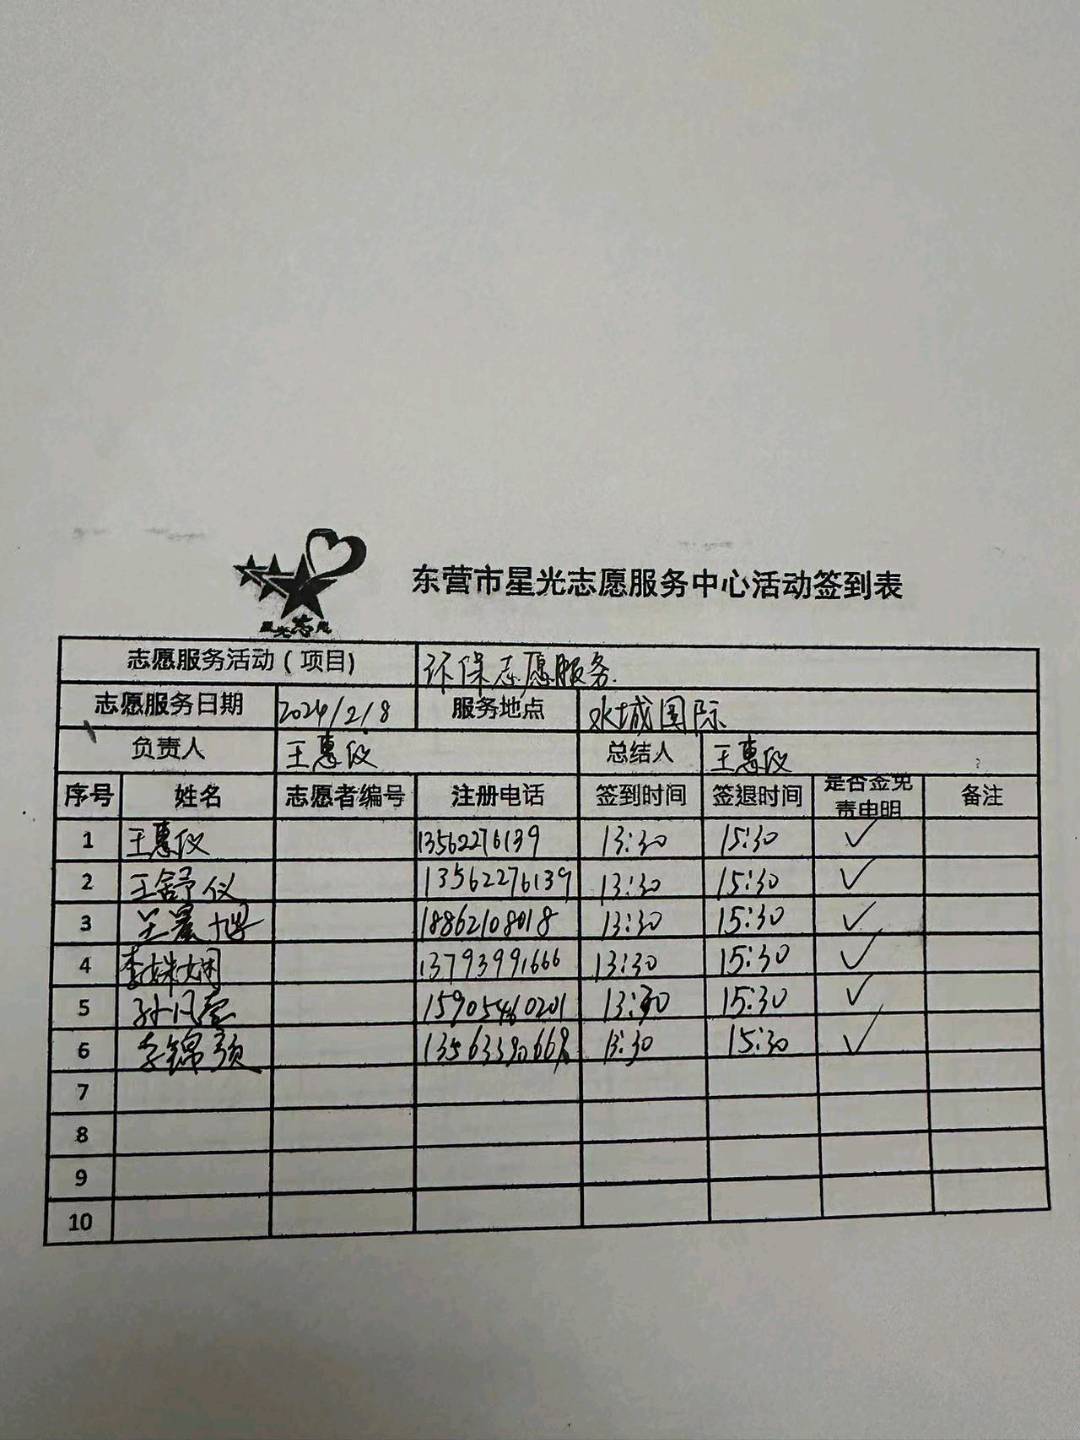 星光志愿
东营市星光志愿服务中心活动签到表
志愿服务活动(项目) 环保志愿服务.
志愿服务日期 2024/2/8 服务地点 水城国际
负责人 王惠仪 总结人 王惠仪
序号 姓名 志愿者编号 注册电话 签到时间 签退时间 是否签免责申明 备注
1 王惠仪 13562276139 13:30 15:30 ✓
2 王舒仪 13562276139 13:30 15:30 ✓
3 兰晨旭 18862108018 13:30 15:30 ✓
4 李姝娴 13793991666 13:30 15:30 ✓
5 孙凡莹 15905460201 13:30 15:30 ✓
6 李锦颜 13:30 15:30 ✓
7
8
9
10